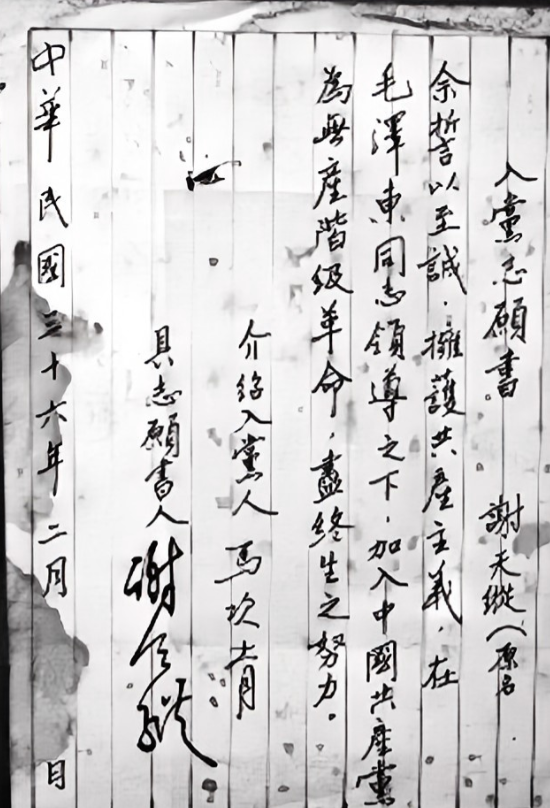 入黨志願書 謝天縱(原名
余誓以至誠．擁護共產主義，在
毛澤東同志領導之下．加入中國共產黨
為無產階級革命，盡終生之努力。
介紹入黨人 馬次青
具志願書人 謝天縱
中華民國三十六年二月 日